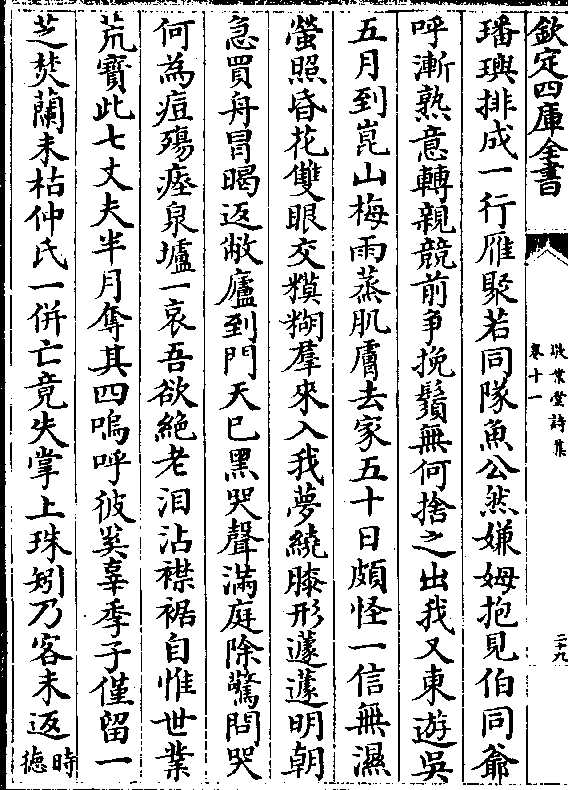 欽定四庫全書
敬業堂詩集
卷十一
二十九
璠璵排成一行雁聚若同隊魚公然嫌姆抱見伯同爺
呼漸熟意轉親競前爭挽鬚無何捨之出我又東遊吳
五月到崑山梅雨蒸肌膚去家五十日頗怪一信無濕
螢照昏花雙眼交糢糊羣來入我夢繞膝形蘧蘧明朝
急買舟冒暍返敝廬到門天已黑哭聲滿庭除驚問哭
何為痘殤瘞泉壚一哀吾欲絶老泪沾襟裾自惟世業
荒寳此七丈夫半月奪其四嗚呼彼奚辜季子僅留一
芝焚蘭未枯仲氏一併亡竟失掌上珠矧乃客未返時徳